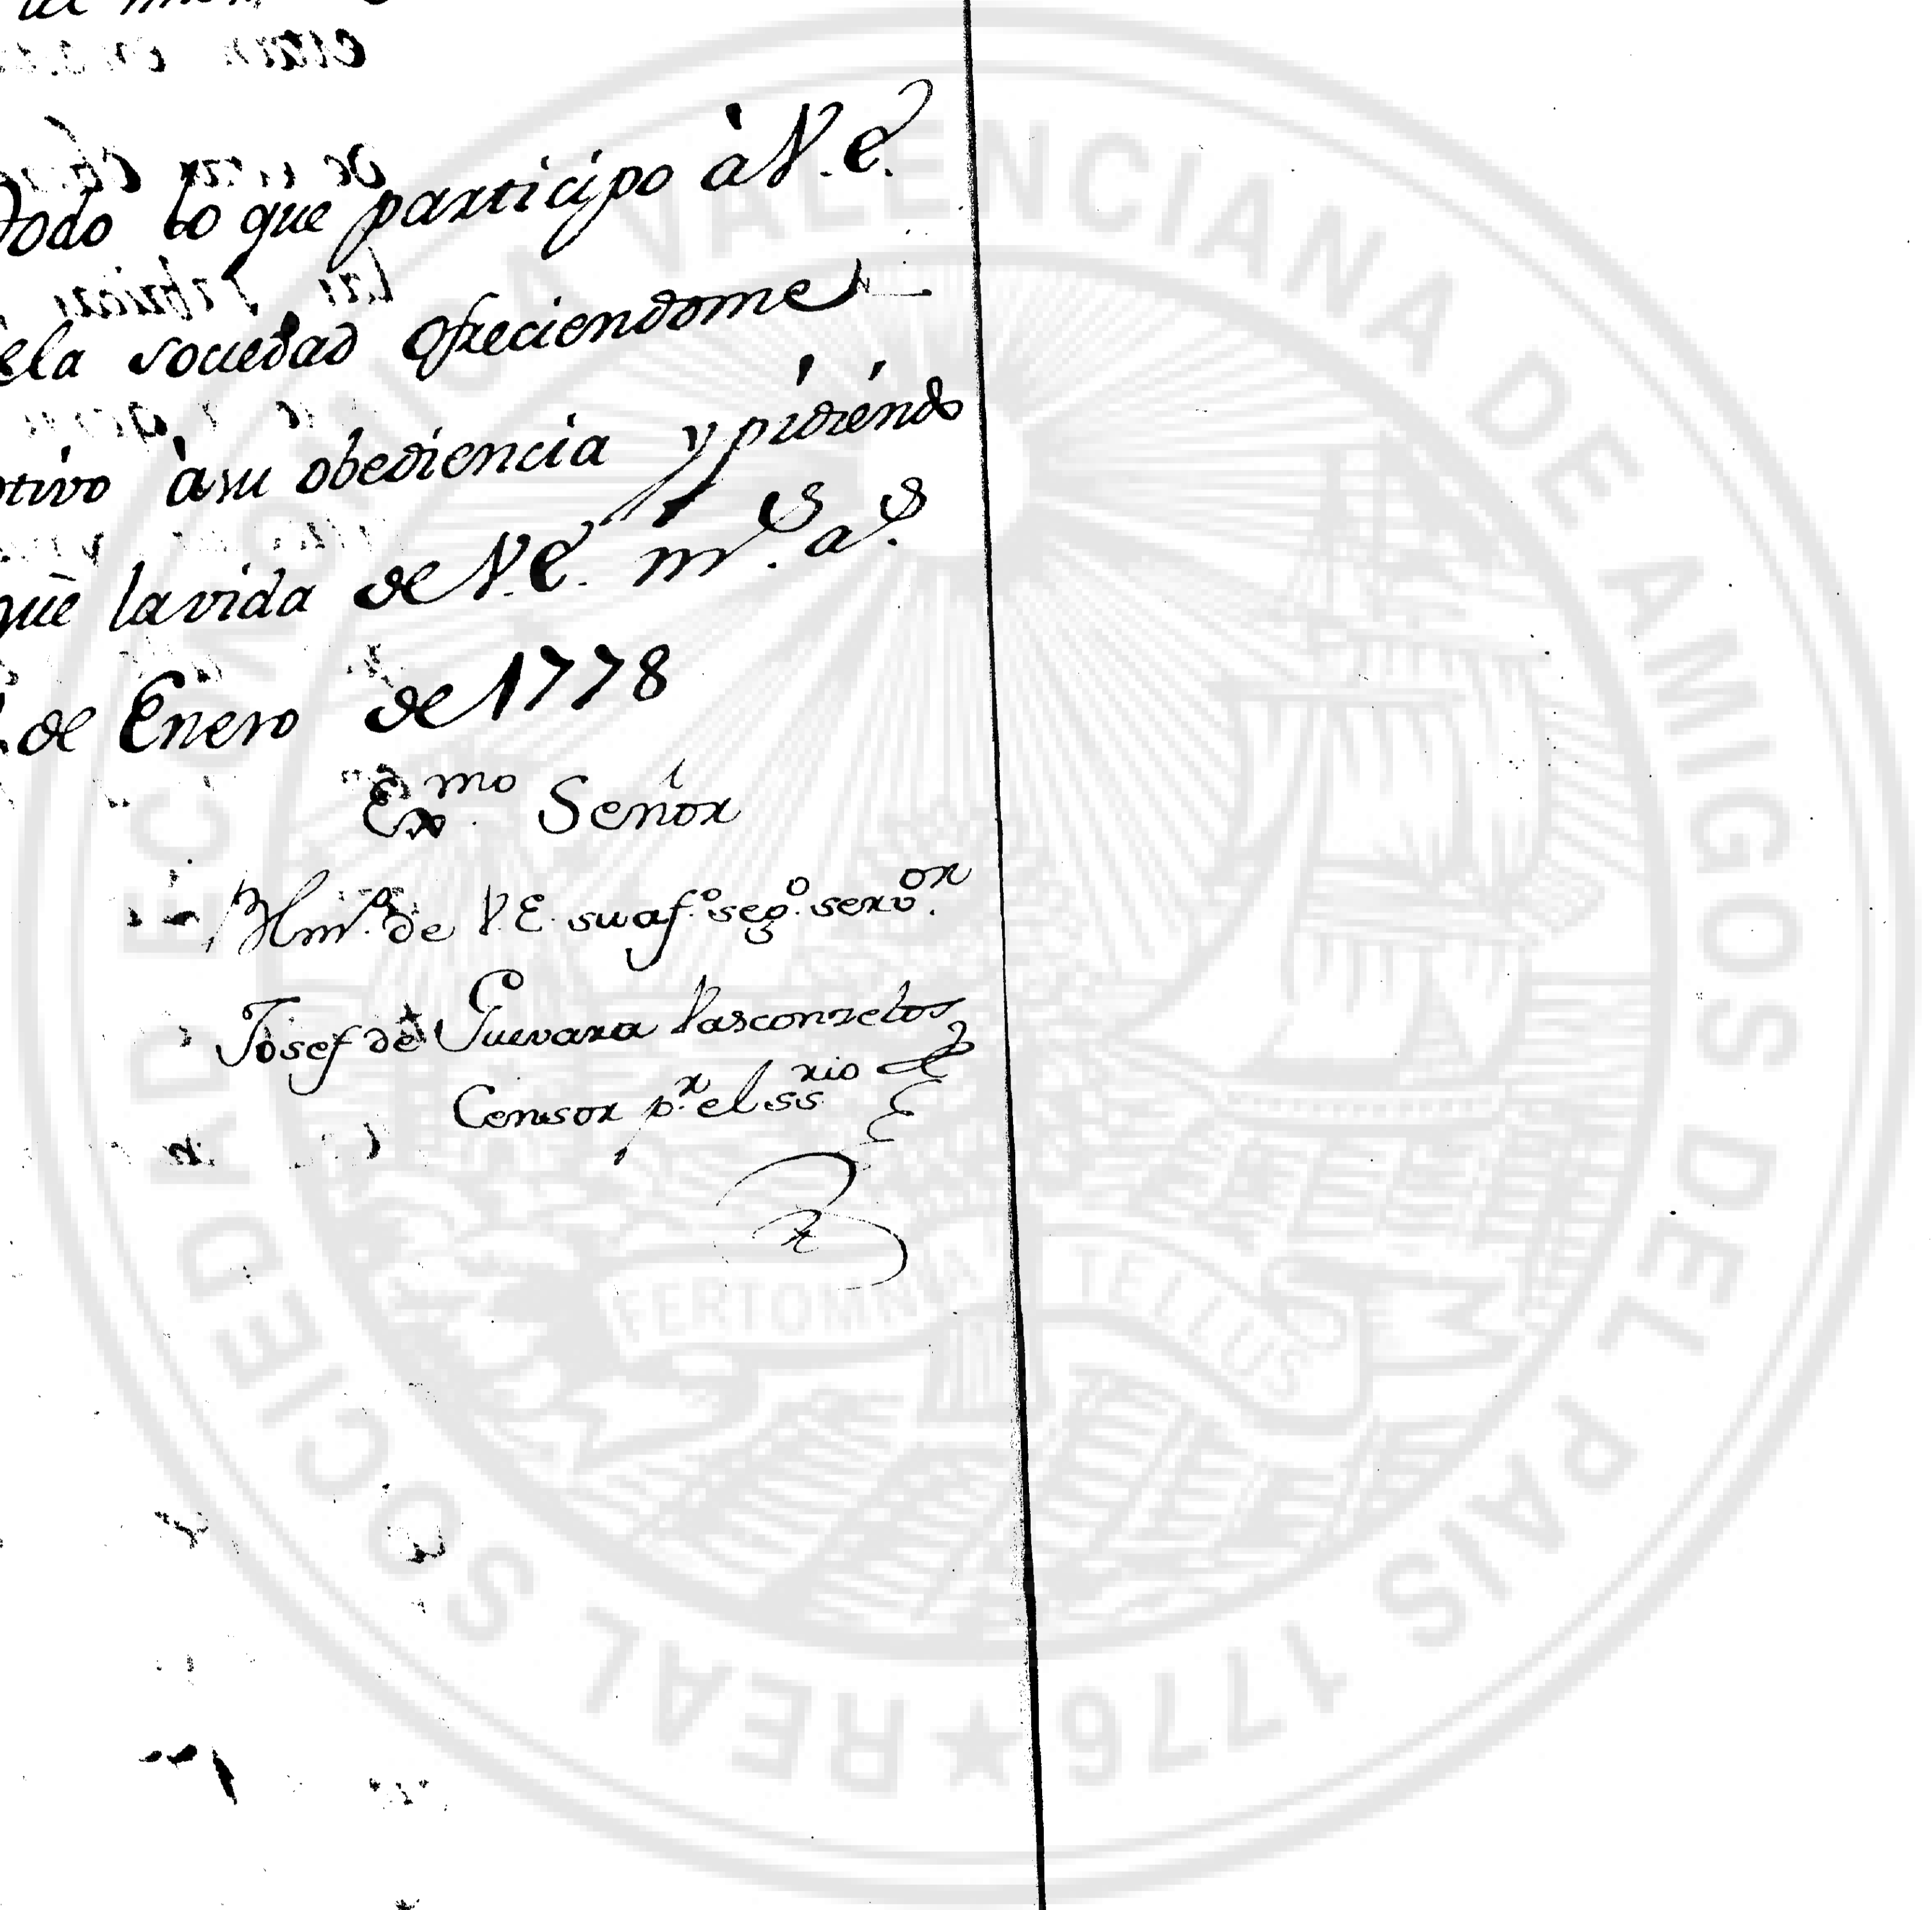 Todo lo que participo à V.E.
ela sociedad ofreciendome
otivo à su obediencia y pidiendo
que la vida de V.E. m.s a.s
de Enero de 1778
Ex.mo Señor
Blm.o de V.E. su af.o seg.o serv.or
Josef de Guevara Vasconzelos
Censor p.r el ss.rio
REAL SOCIEDAD ECONOMICA VALENCIANA DE AMIGOS DEL PAIS 1776
FERT OMNIA TELLUS